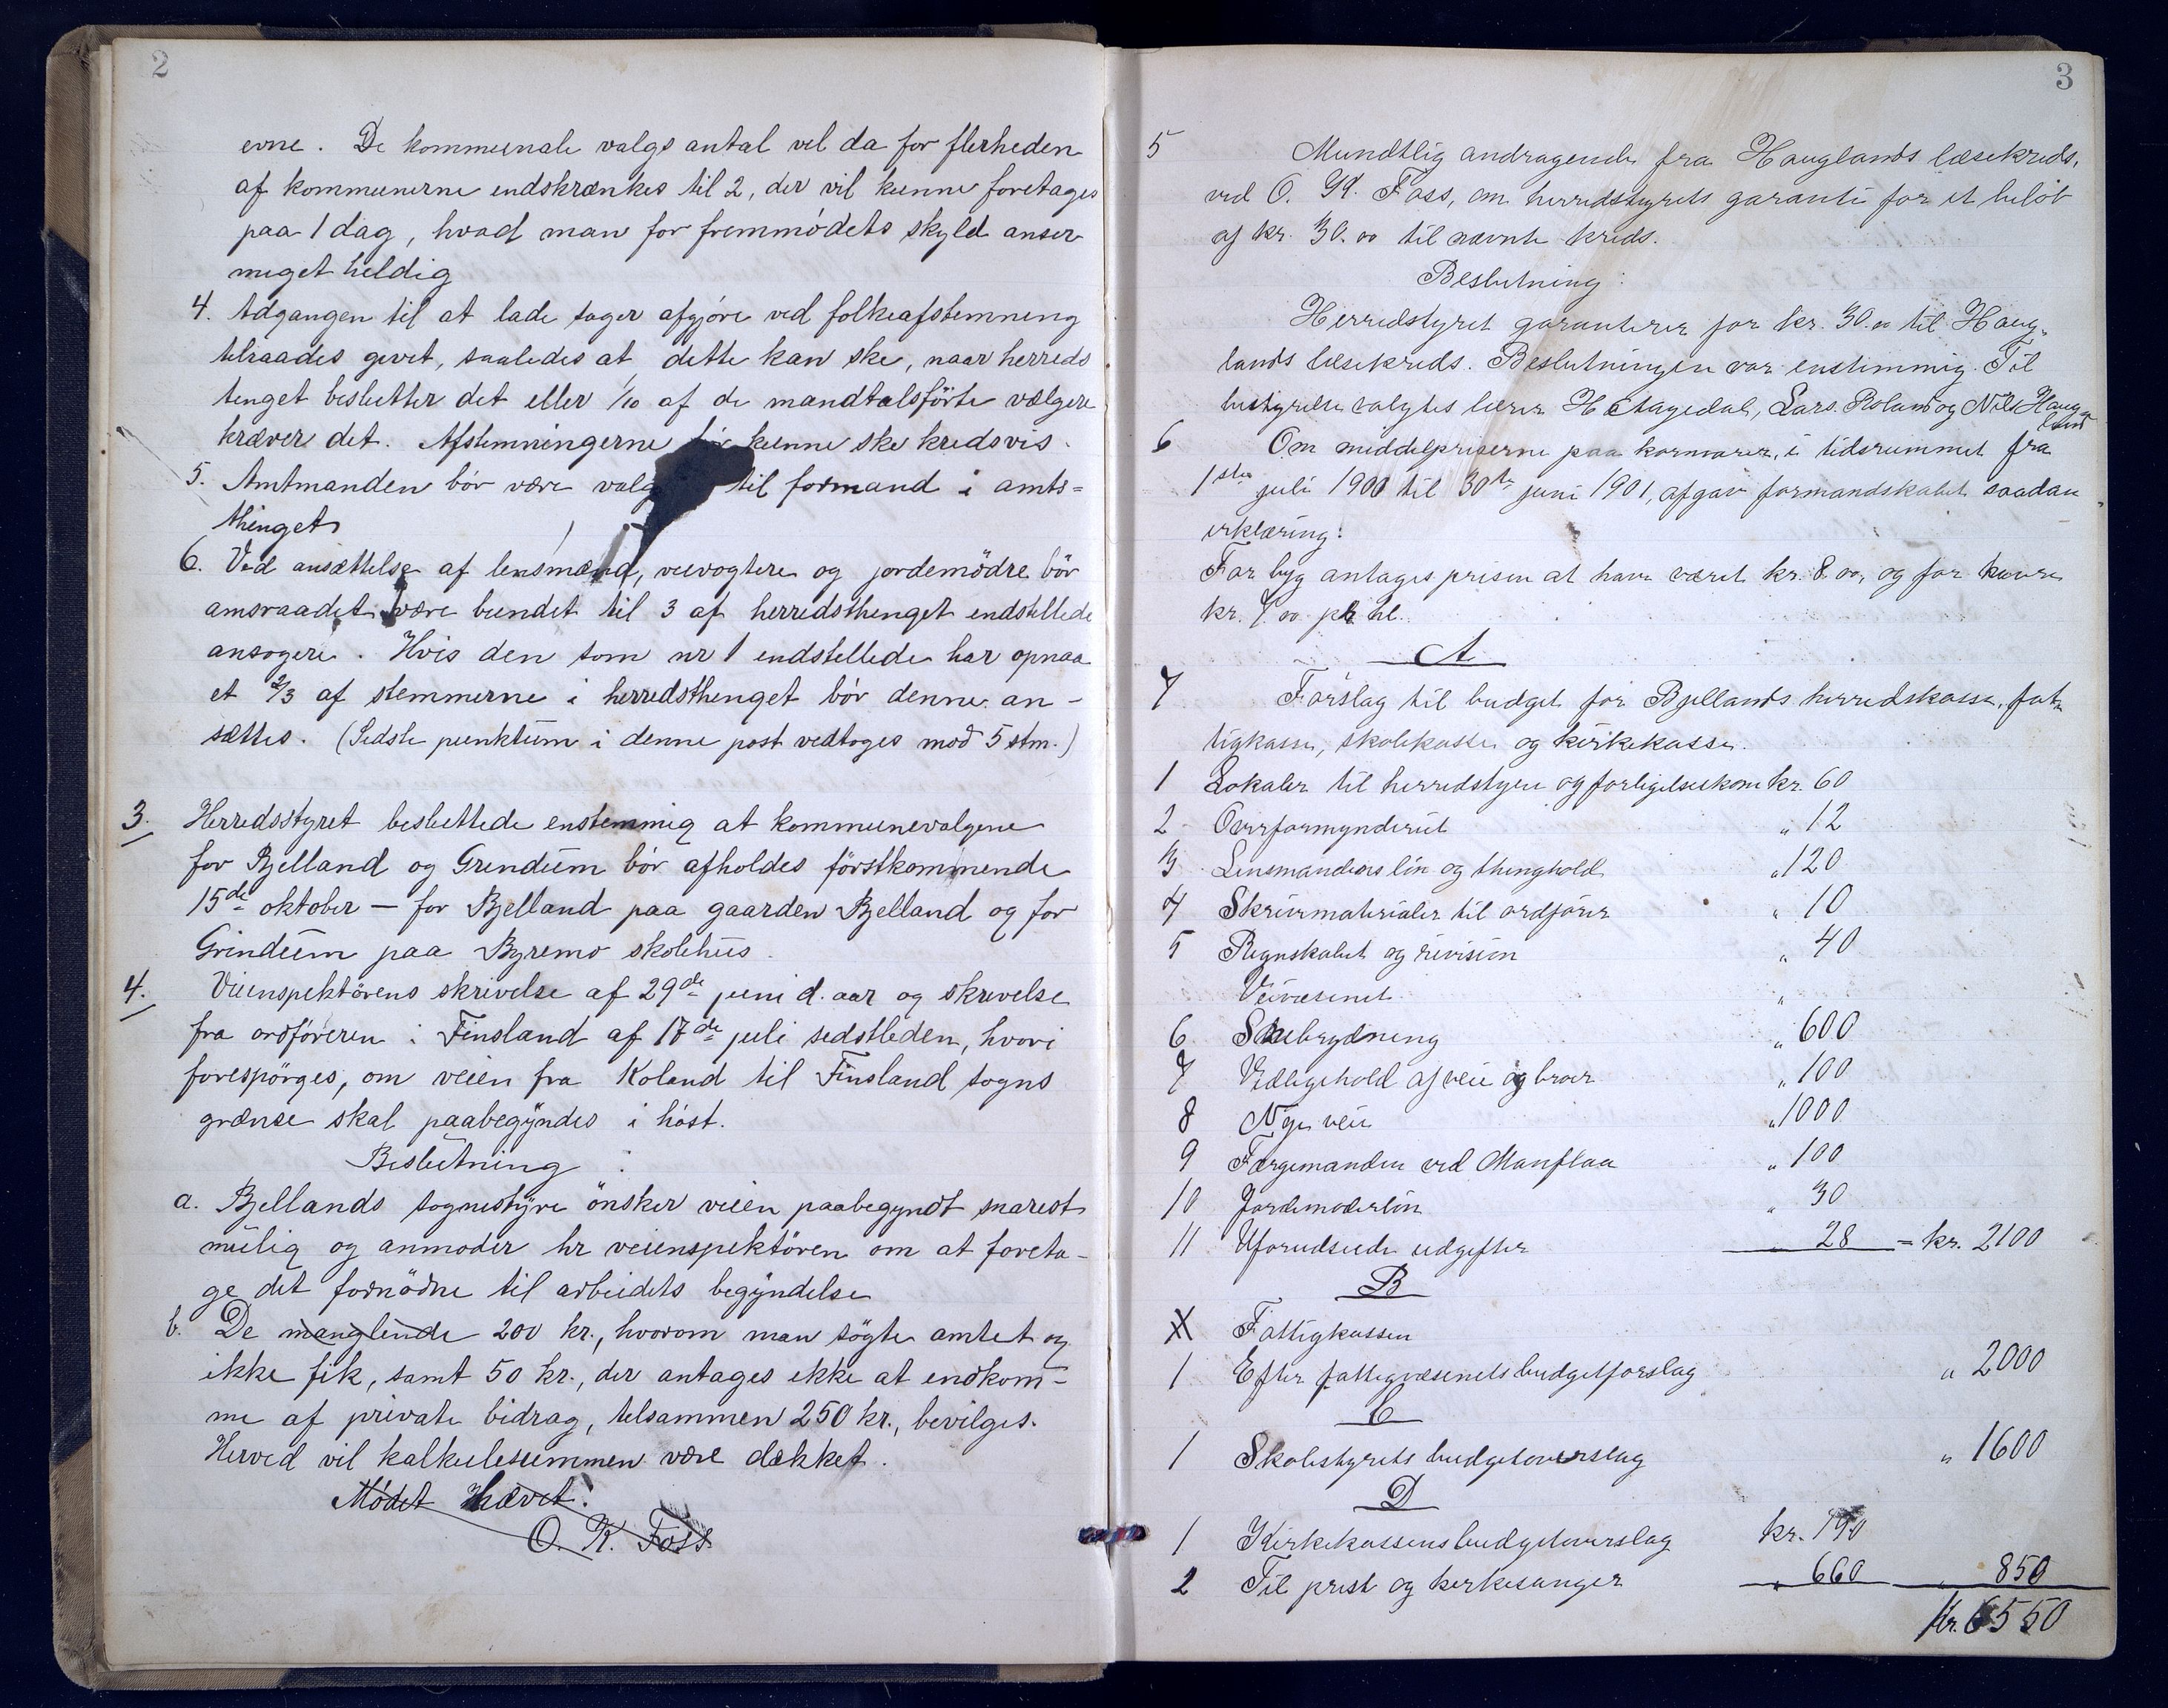 2
evne. De kommunale valgs antal vil da for flerheden
af kommunerne indskrænkes til 2, der vil kunne foretages
paa 1 dag, hvad man for fremmødets skyld anser
meget heldig
4. Adgangen til at lade sager afgjøre ved folkeafstemning
tilraades givet, saaledes at dette kan ske, naar herreds
tinget beslutter det eller 1/10 af de mandtalsførte vælgere
kræver det. Afstemningerne bør kunne ske kredsvis.
5. Amtmanden bør være valg til formand i amts=
thinget
6. Ved ansættelse af lensmænd, veivogtere og jordemødre bør
amsraadet være bundet til 3 af herredsthinget indstillede
ansøgere. Hvis den som nr 1 indstillede har opnaa
et 2/3 af stemmerne i herredsthinget bør denne an-
sættes. (Sidste punktum i denne post vedtoges mod 5 stm.)
3. Herredsstyret besluttede enstemmig at kommunevalgene
for Bjelland og Grindum bør afholdes førstkommende
15de oktober – for Bjelland paa gaarden Bjelland og for
Grindum paa Byremo skolehus.
4. Veiinspektørens skrivelse af 29de juni d. aar og skrivelse
fra ordføreren i Finsland af 17de juli sidstleden, hvori
forespørges, om veien fra Koland til Finsland sogns
grænse skal paabegyndes i høst.
Beslutning :
a. Bjellands sognestyre ønsker veien paabegyndt snarest
mulig og anmoder hr veiinspektøren om at foreta-
ge det fornødne til arbeidets begyndelse
b. De manglende 200 kr., hvorom man søgte amtet og
ikke fik, samt 50 kr., der antages ikke at indkom-
me af private bidrag, tilsammen 250 kr., bevilges.
Herved vil kalkulesummen være dækket.
Mødet hævet.
O. K. Foss.
3
5 Mundtlig andragende fra Hauglands læsekreds,
ved O. K. Foss, om herredstyrets garanti for et beløb
af kr. 30.00 til nævnte kreds.
Beslutning :
Herredstyret garanterer for kr. 30.00 til Haug-
lands læsekreds. Beslutningen var enstimmig. Til
bestyrelse valgtes lærer H Aagedal, Lars Roland og Nils Haug
land
6 Om middelpriserne paa kornvarer, i tidsrummet fra
1ste juli 1900 til 30te juni 1901, afgav formandskabet saadan
erklæring:
For byg antages prisen at have været kr. 8.00, og for havre
kr. 7.00 pr hl.
A
7 Forslag til budget for Bjellands herredskasse, fat-
tigkasse, skolekasse og kirkekasse.
1 Lokaler til herredstyre og forligelseskom kr. 60
2 Overformynderiet " 12
3 Lensmandens løn og thinghold " 120
4 Skrivematerialer til ordfører " 10
5 Regnskabet og revision " 40
Veivæsenet "
6 Snebrydning " 600
7 Vedligehold af veie og broer " 100
8 Nye veie " 1000
9 Færgemanden ved Manflaa " 100
10 Jordemoderløn " 30
11 Uforudseede udgifter " 28 = kr. 2100
B
X Fattigkassen
1 Efter fattigvæsenets budgetforslag " 2000
C
1 Skolestyrets budgetoverslag " 1600
D
1 Kirkekassens budgetoverslag kr. 190
2 Til prest og kirkesanger " 660 " 850
Kr. 6550